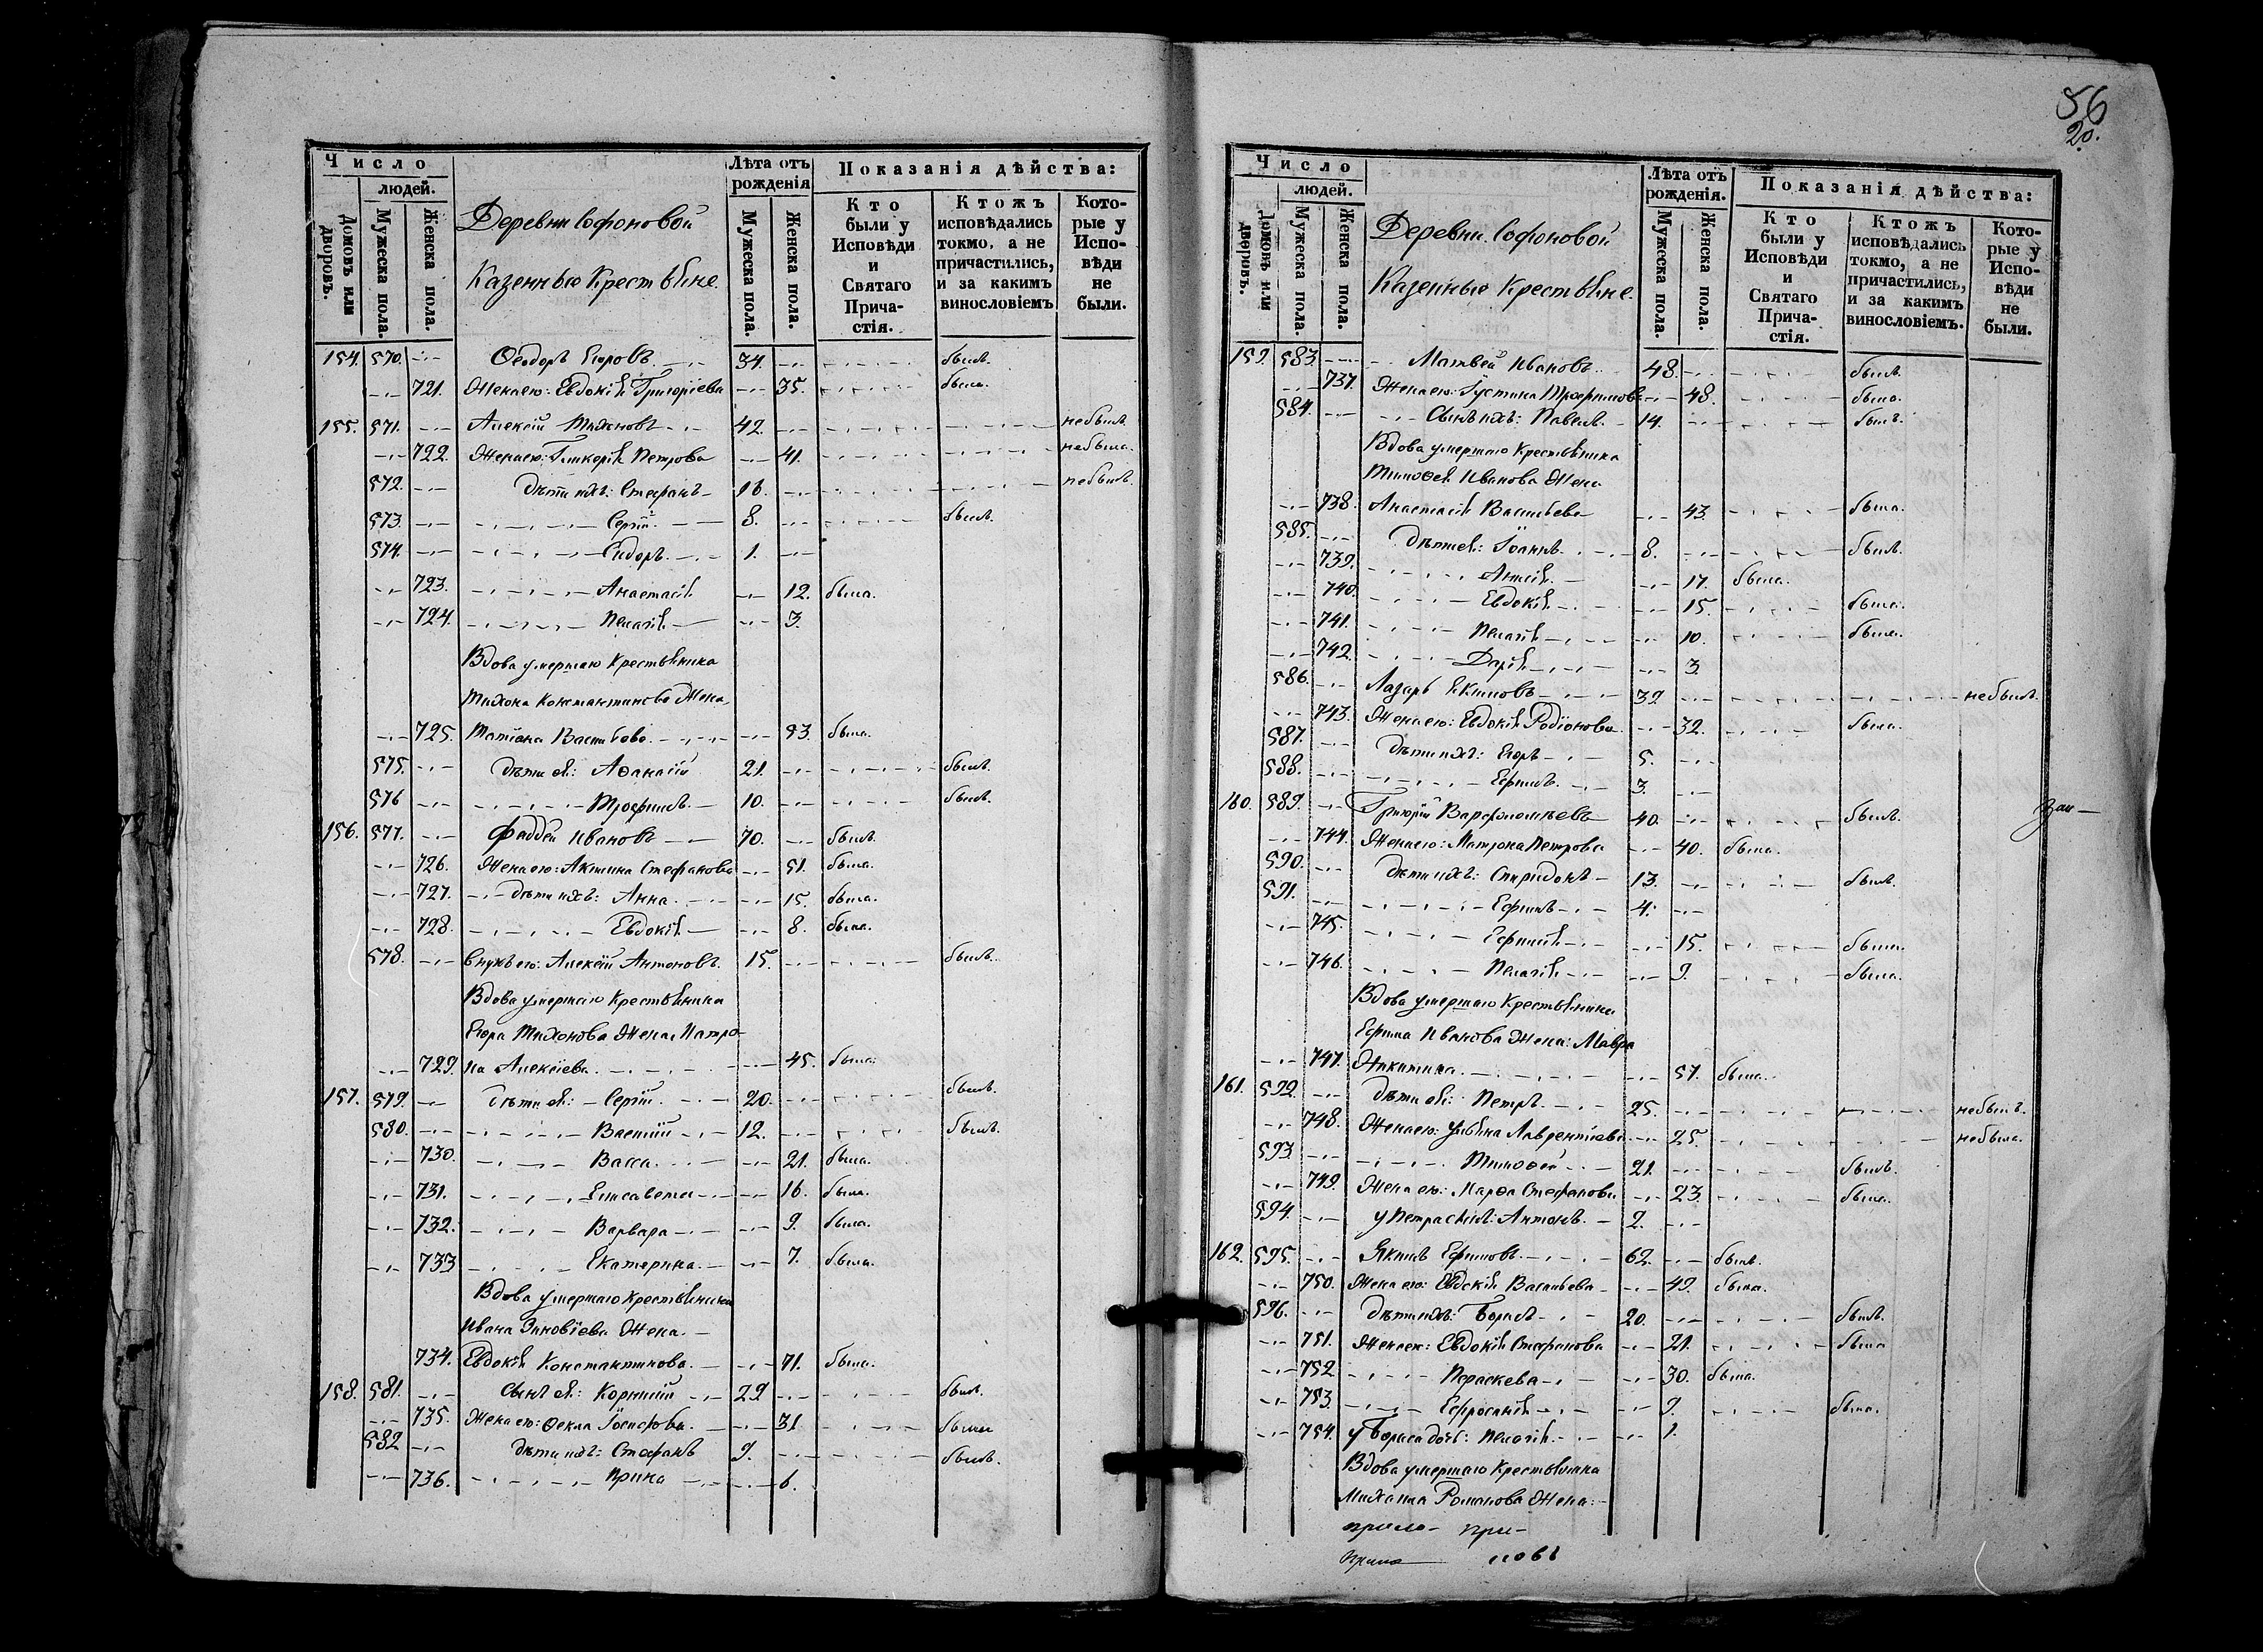 56
20.
Число
людей.
Домовъ или дворовъ.
Мужеска пола.
Женска пола.
Деревни Софоновой
Казенныѣ Крестьяне.
Лѣта отъ рожденія
Мужеска пола.
Женска пола.
Показанія дѣйства:
Кто были у Исповѣди и Святаго Прича-стія.
Ктожъ исповѣдались токмо, а не причастились, и за какимъ винословіемъ
Кото-рые у Испо-вѣди не были.
154. 570. Ѳеодоръ Егоровъ 34. былъ.
721. Жена его: Евдокія Григоріева 35. была.
155. 571. Алексій Тихоновъ 42. не былъ.
722. Жена его: Гликерія Петрова 41. не была.
572. Дѣти ихъ: Стефанъ 16. не былъ.
573. Сергій 8. былъ.
574. Сидоръ 1.
723. Анастасія 12. была.
724. Пелагія 3.
Вдова умершаго Крестьянина
Тихона Константинова Жена
725. Татіана Васильева 53. была.
575. дѣти ея: Аѳанасій 21. былъ.
576 Трофимъ 10. былъ.
156. 577. Фаддей Ивановъ 70. былъ.
726. Жена его: Акилина Стефанова 51. была.
727. дѣти ихъ: Анна 15. была.
728. Евдокія 8. была.
578. Внукъ его: Алексій Антоновъ. 15. былъ.
Вдова умершаго Крестьянина
Егора Тихонова Жена Матро-
729. на Алексіева 45. была.
157. 579. Дѣти ея: Сергій 20. былъ.
580. Василій 12. былъ.
730. Васса 21. была.
731. Елисавета 16. была.
732. Варвара 9. была.
733 Екатерина 7. была.
Вдова умершаго Крестьянина
Ивана Зиновіева Жена
734. Евдокія Константинова 71. была.
158. 581. Сынъ ея: Корнилій 29 былъ.
735. Жена его: Ѳекла Іосифова 31 была
582 Дѣти ихъ: Стефанъ 9. былъ.
736. Ирина 6.
Число
людей.
Домовъ или дворовъ.
Мужеска пола.
Женска пола.
Деревни Софоновой
Казенныѣ Крестьяне.
Лѣта отъ рожденія.
Мужеска пола.
Женска пола.
Показанія дѣйства:
Кто были у Исповѣди и Святаго Прича-стія.
Ктожъ исповѣдались токмо, а не причастились, и за какимъ винословіемъ.
Кото-рые у Испо-вѣди не были.
159. 583. Матвей Ивановъ 48. былъ.
737. Жена его: Іустина Трофимова 48. была.
584. Сынъ ихъ: Павелъ 14. былъ.
Вдова умершаго Крестьянина
Тимоѳея Иванова Жена
738. Анастасія Васильева 43. была.
585. Дѣти ея: Іоаннъ 8. былъ.
739. Анисія 17. была.
740. Евдокія 15. была.
741. Пелагія 10. была.
742. Дарія 3.
586. Лазарь Екимовъ 39 не былъ.
743. Жена его: Евдокія Родіонова 32. была.
587. Дѣти ихъ: Егоръ 5.
588. Ефимъ 3.
160. 589. Григорій Варфоломѣевъ 40. былъ.
744. Жена его: Матрона Петрова 40. была.
590. Дѣти ихъ: Спиридонъ 13. былъ.
591. Ефимъ 4.
745. Ефимія 15. была.
746. Пелагія 9. была.
Вдова умершаго Крестьянина
Ефима Иванова Жена: Мавра
747. Никитина 57. была.
161. 592. Дѣти ея: Петръ 25. не былъ.
748. Жена его: Уліяна Лаврентіева 25. не была.
593. Тимоѳей 21. былъ.
749. Жена его: Марѳа Стефанова 23. была.
594. у Петра сынъ: Антонъ 2.
162. 595. Якимъ Ефимовъ 62. былъ.
750. Жена его: Евдокія Васильева 49. была.
596. Дѣти ихъ: Борисъ 20. былъ.
751. Жена его: Евдокія Стефанова 21. была
752 Параскева 30. была.
753. Ефросинія 9. была.
754. у Бориса дочь: Пелагія 1.
Вдова умершаго Крестьянина
Михаила Романова Жена: